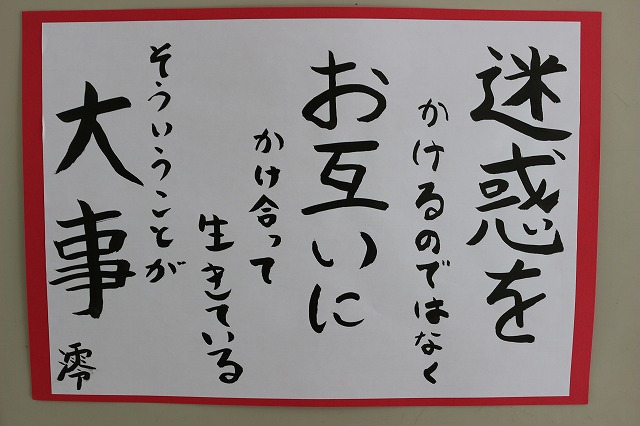 迷惑を
かけるのではなく
お互いに
かけ合って
生きている
そういうことが
大事
澪